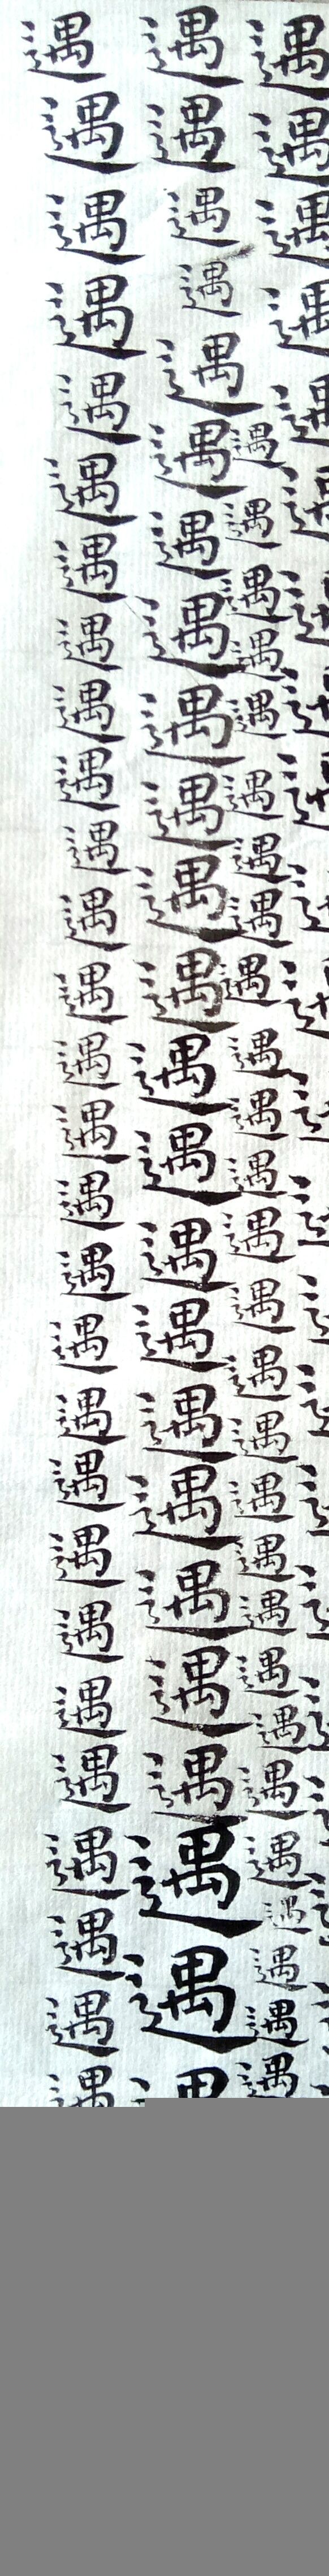 遇遇遇遇
遇遇遇遇遇遇遇遇遇遇遇遇遇遇遇遇遇遇遇遇遇遇遇遇遇遇遇
遇遇遇遇遇遇遇遇遇遇遇遇遇遇遇遇遇遇遇遇遇遇遇
遇遇遇遇遇遇遇遇遇遇遇遇遇遇遇遇遇遇遇遇遇遇遇遇遇遇遇遇